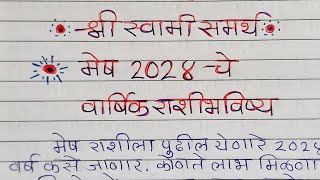 श्री स्वामी समर्थ
मेष 2024-चे
वार्षिक राशीभविष्य
मेष राशीला पुढील येणारे 202
वर्ष कसे जाणार. कोणते लाभ मिळणा